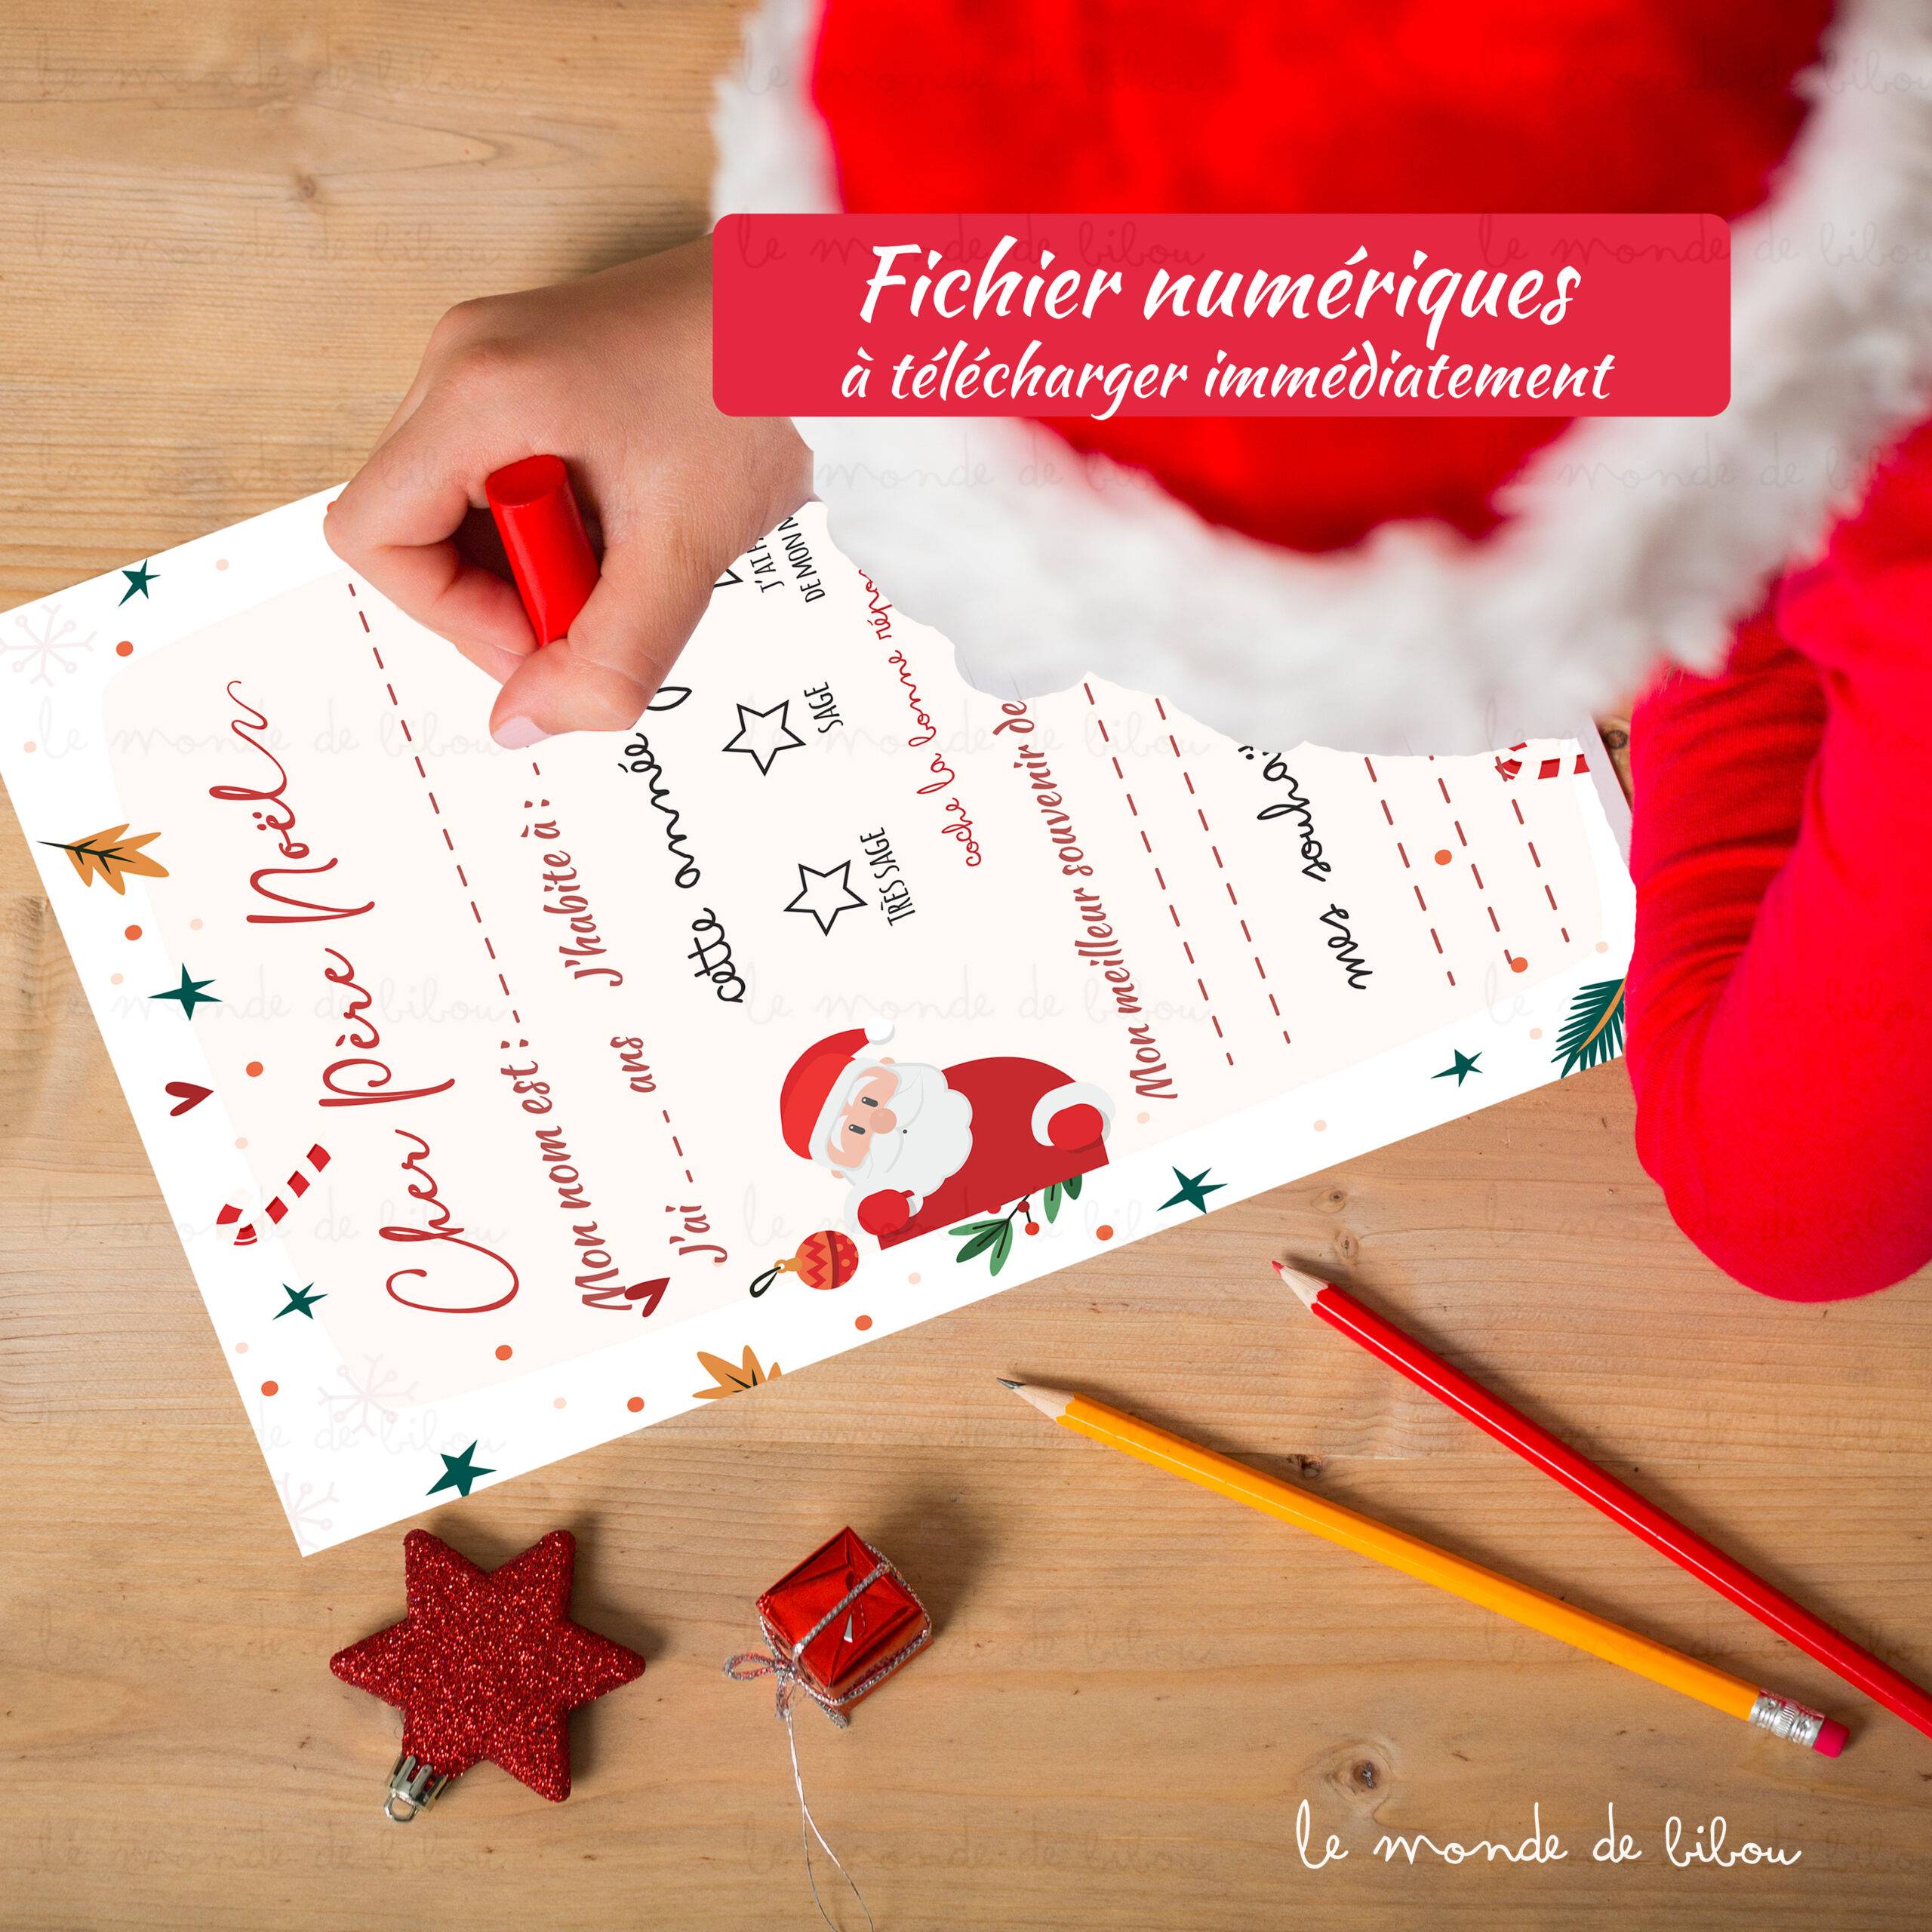 Fichier numériques
à télécharger immédiatement
Cher Père Noël
Mon nom est :
J'ai ans J'habite à :
cette année
TRÈS SAGE SAGE J'AI
DE MON
coche la bonne
Mon meilleur souvenir de
mes
le monde de bibou